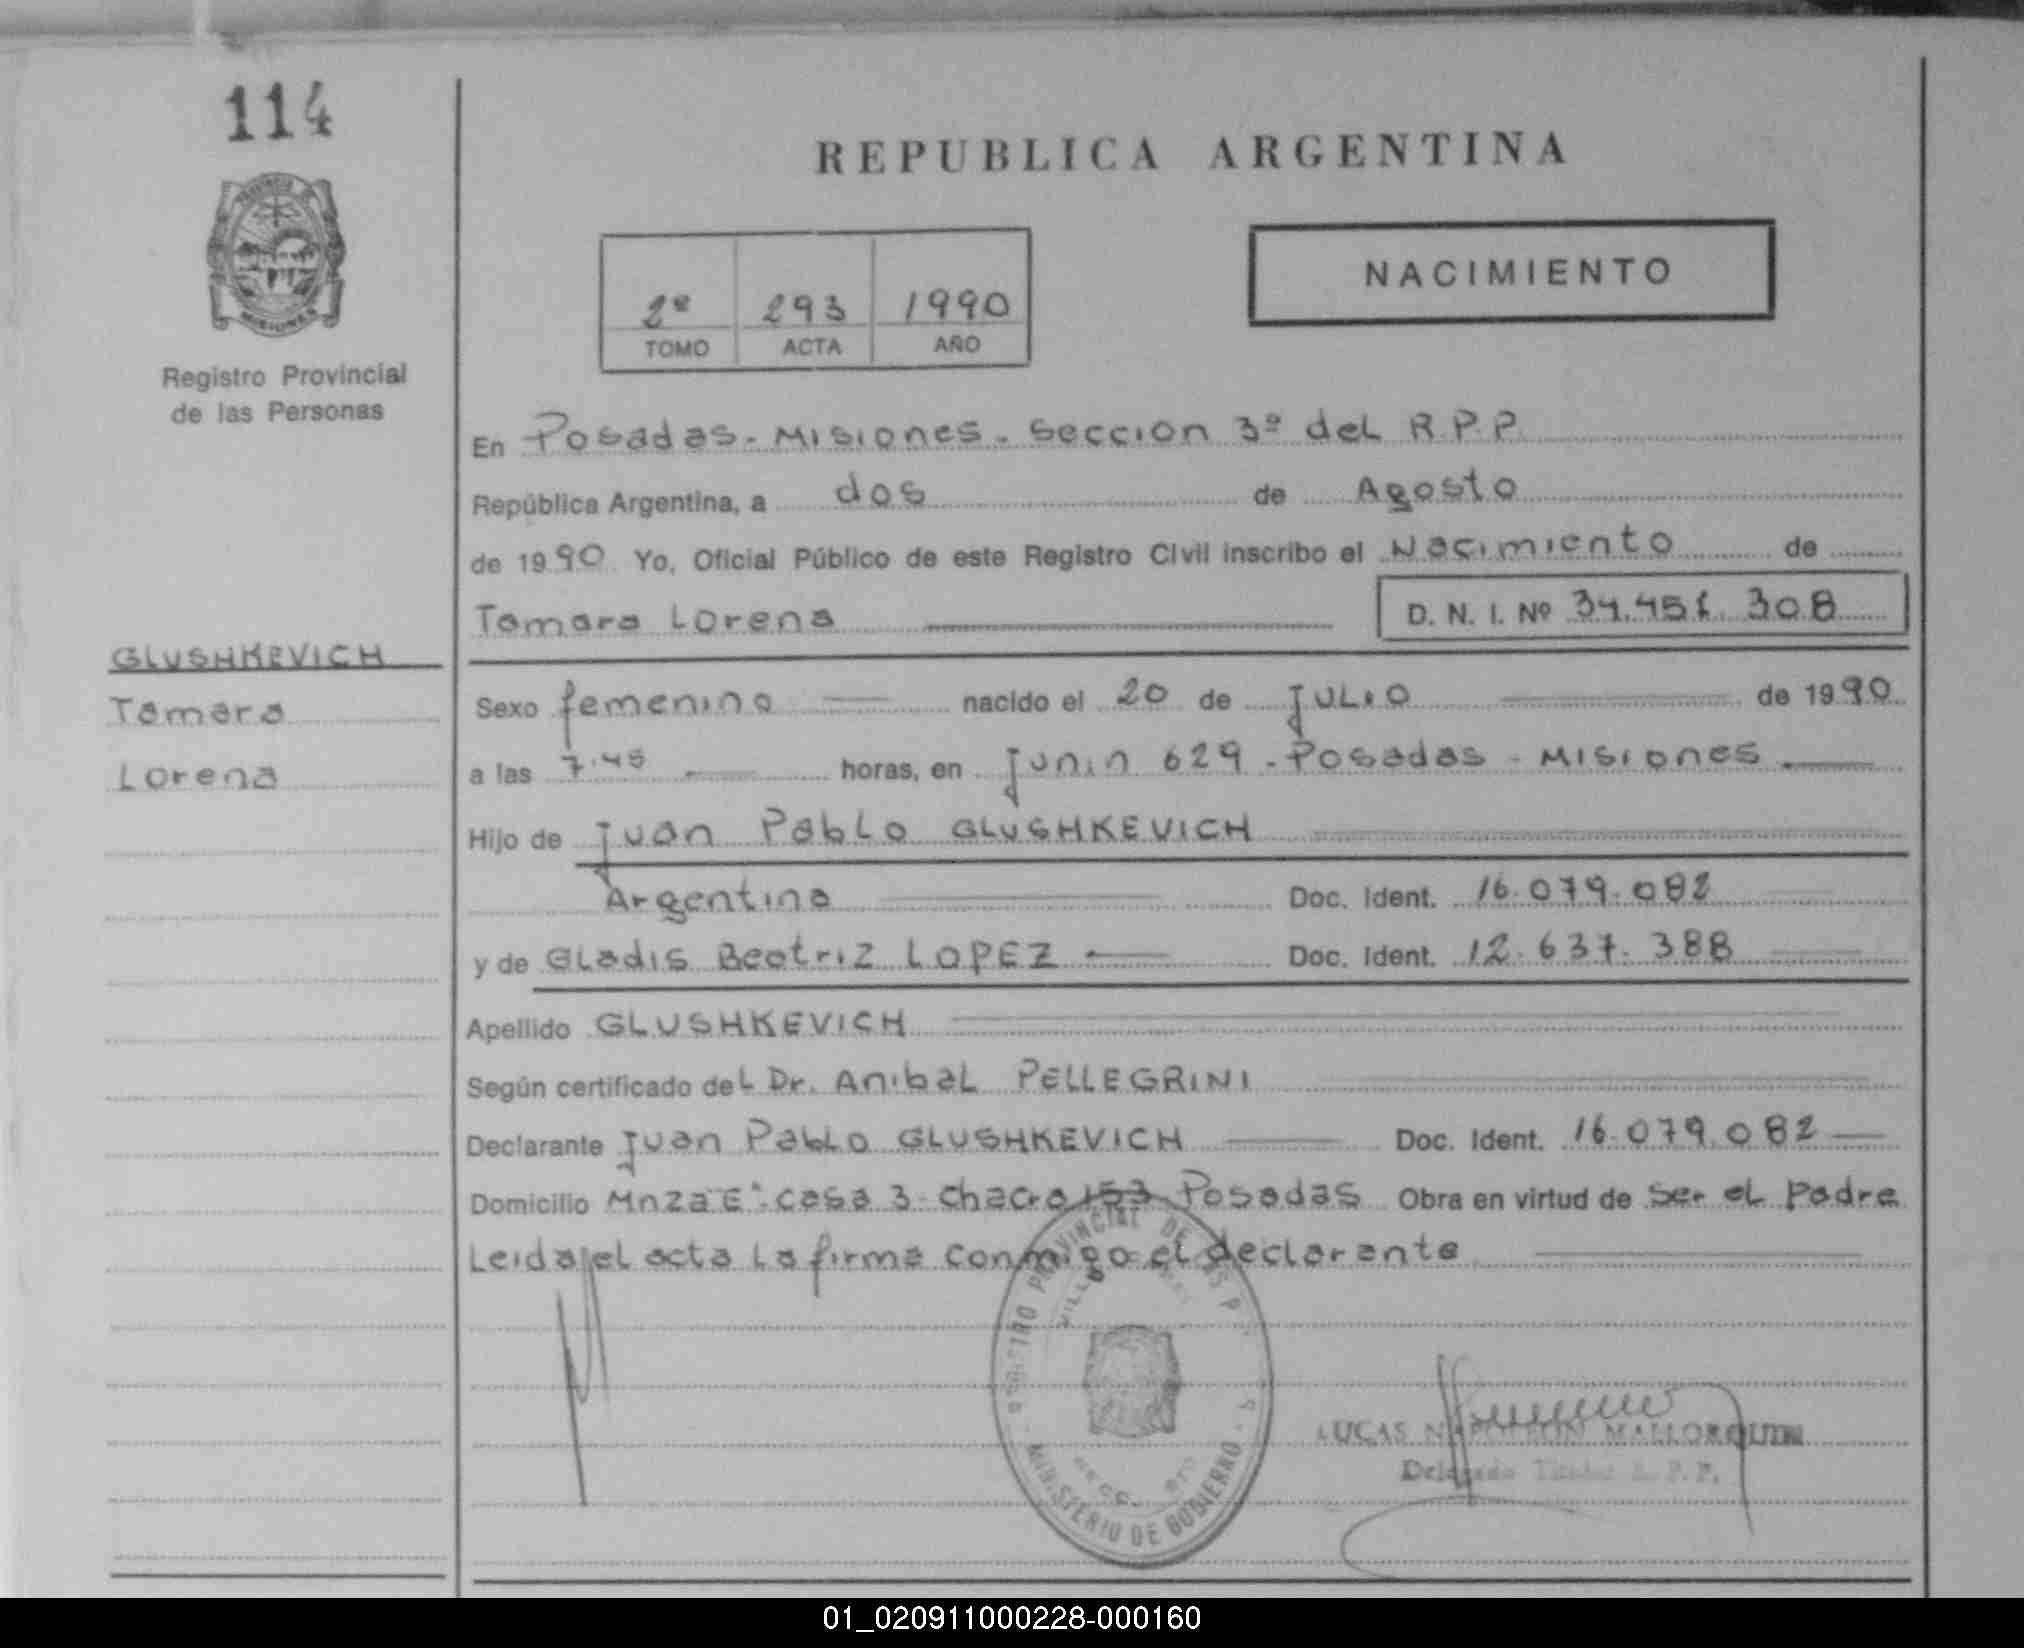 114
REPUBLICA ARGENTINA
PROVINCIA DE
MISIONES
Registro Provincial
de las Personas
NACIMIENTO
2º 293 1990
TOMO ACTA AÑO
En Posadas - Misiones - Seccion 3º del R.P.P.
República Argentina, a dos de Agosto
de 1990 Yo, Oficial Público de este Registro Civil inscribo el Nacimiento de
Tamara Lorena D. N. I. Nº 34.451.308
GLUSHKEVICH
Tamara
Lorena
Sexo femenino nacido el 20 de Julio de 1990
a las 7.45 horas, en Junin 629 - Posadas - Misiones
Hijo de Juan Pablo GLUSHKEVICH
Argentina Doc. Ident. 16.079.082
y de Gladis Beatriz LOPEZ Doc. Ident. 12.637.388
Apellido GLUSHKEVICH
Según certificado del Dr. Anibal PELLEGRINI
Declarante Juan Pablo GLUSHKEVICH Doc. Ident. 16.079.082
Domicilio Mnza E". casa 3 - chacra 153 Posadas Obra en virtud de ser el padre
Leida el acta la firma conmigo el declarante
PROVINCIAL DE LAS P
MINISTERIO DE GOBIERNO
LUCAS NAPOLEON MALLORQUIN
Delegado Titular R. P. P.
01_020911000228-000160